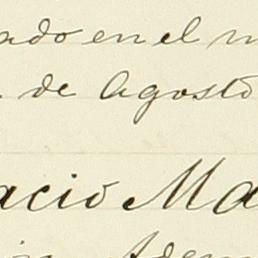 ado en el
de Agosto
acio Ma